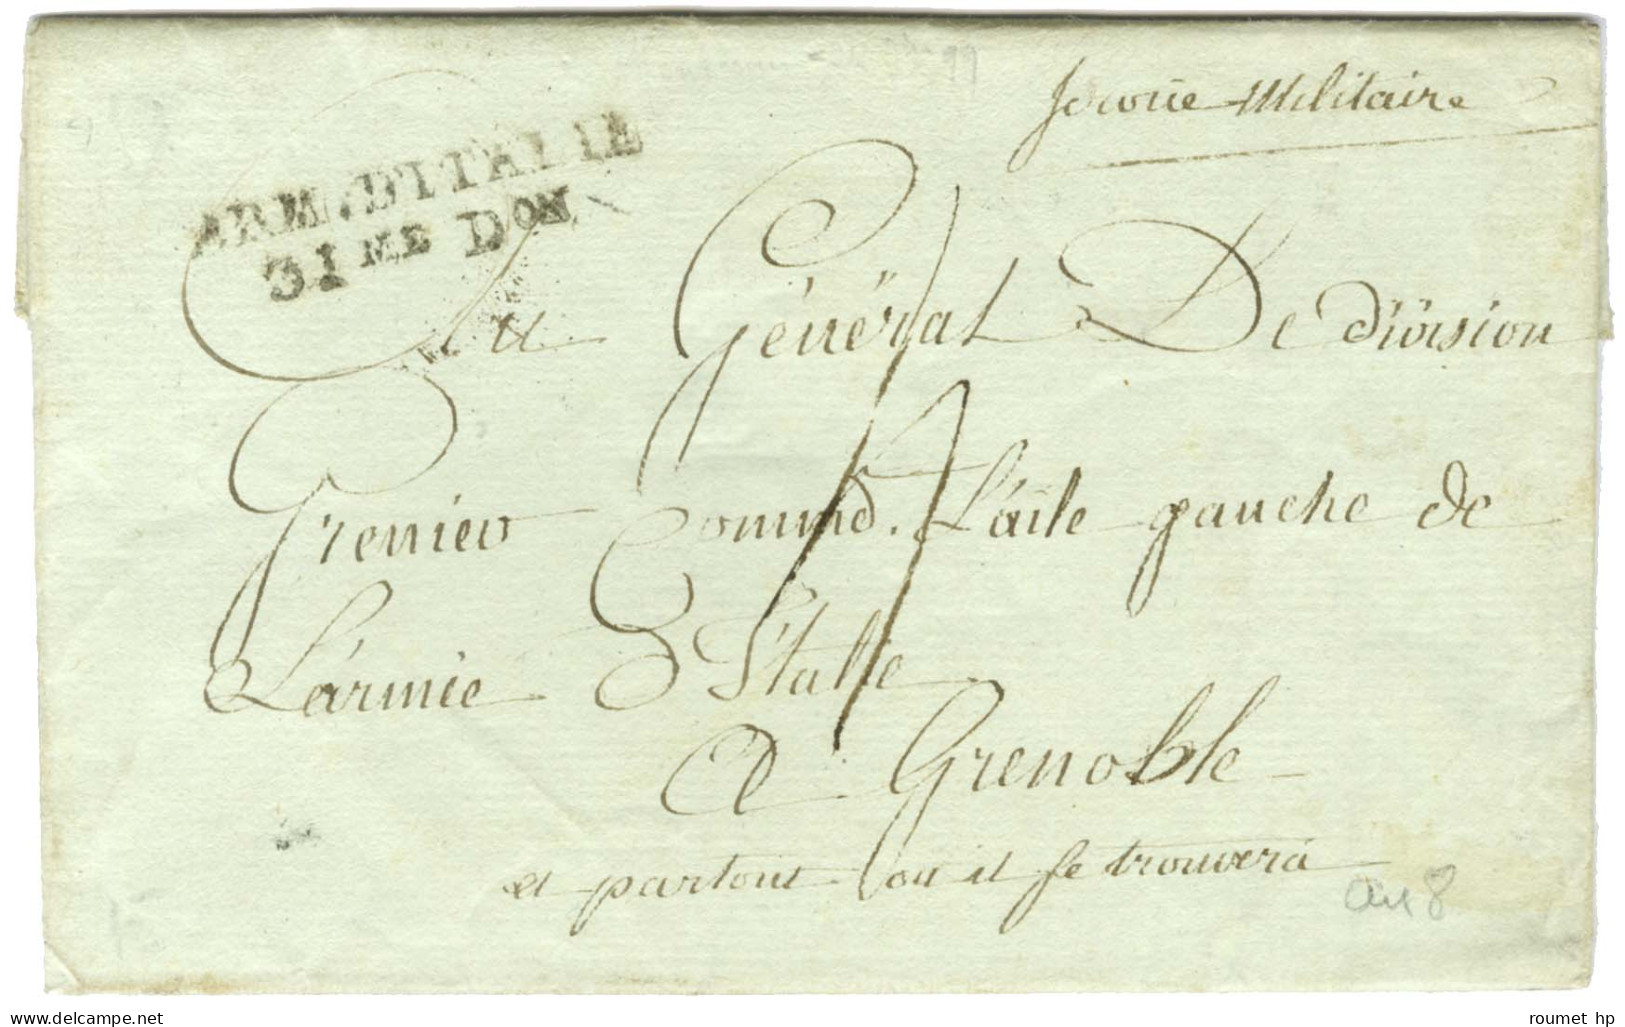 Service Militaire
ARM. D'ITALIE
31ME DON
Au Général De division
Grenier Commd. L'aile gauche de
L'armée D'Italie
a Grenoble
et partout ou il se trouvera
an 8
roumet hp
www.delcampe.net